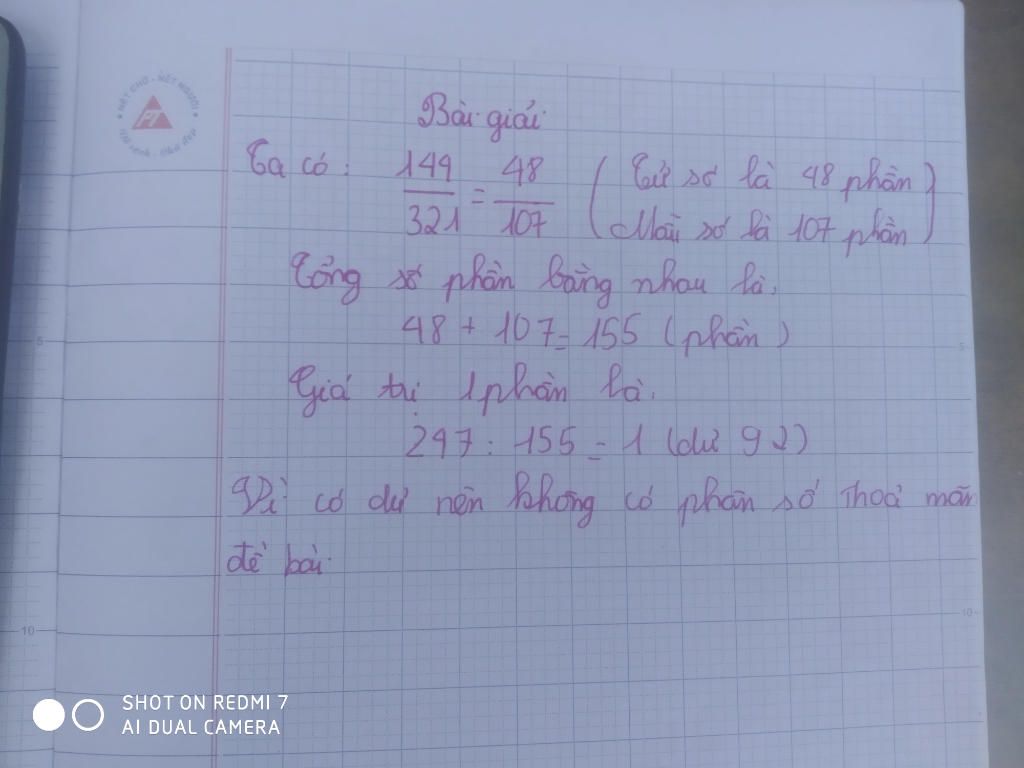 NÉT CHỮ - NẾT NGƯỜI
PT
Bài giải
Ta có: 144/321 = 48/107 (Tử số là 48 phần
Mẫu số là 107 phần)
Tổng số phần bằng nhau là.
48 + 107 = 155 (phần)
Giá trị 1 phần là.
247 : 155 = 1 (dư 92)
Vì có dư nên không có phân số thoả mãn
đề bài.
5
5
10
10
SHOT ON REDMI 7
AI DUAL CAMERA